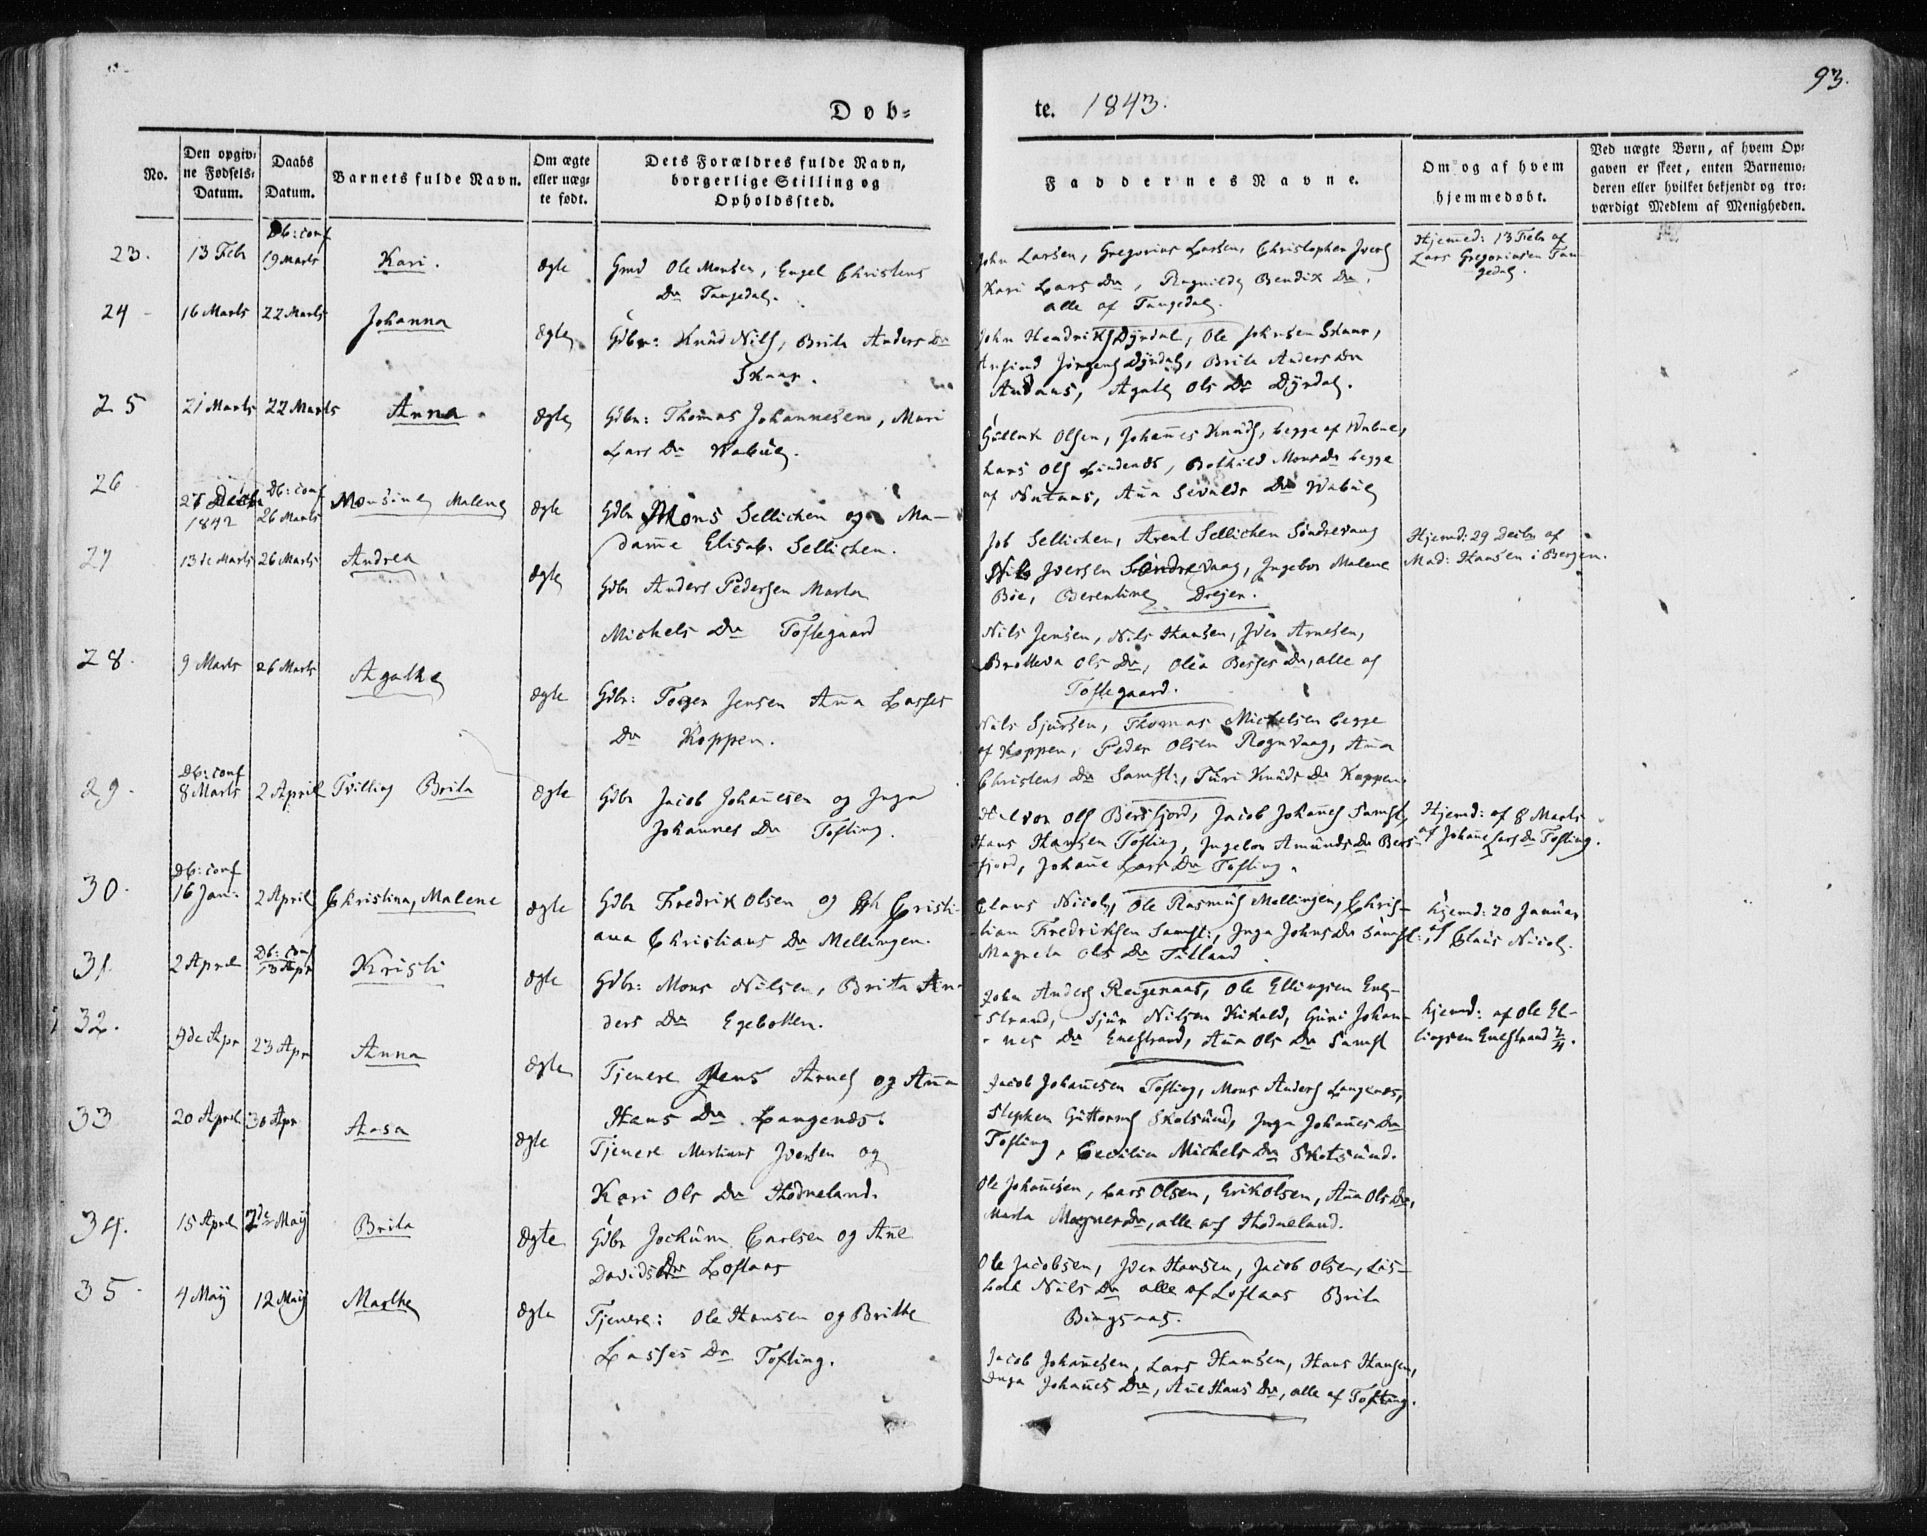 93.
Døb-
te. 1843.
No.
Den opgiv-
ne Fødsels-
Datum.
Daabs
Datum.
Barnets fulde Navn.
Om ægte
eller uæg-
te født.
Dets Forældres fulde Navn,
borgerlige Stilling og
Opholdssted.
Faddernes Navne.
Om og af hvem
hjemmedøbt.
Ved uægte Børn, af hvem Op-
gaven er skeet, enten Barnemo-
deren eller hvilket bekjendt og tro-
værdigt Medlem af Menigheden.
23. 13 Febr Db: conf 19 Marts Kari. Ægte
Gmd Ole Monsen, Engel Christens
Dr Tangedal.
John Larsen, Gregorius Larsen, Christopher Jvers
Kari Lars Dr, Ragnilde Bendix Dr,
alle af Tangedal.
Hjemmed: 13 Febr af
Lars Gregoriusen Tan-
gedal.
24 16 Marts 22 Marts Johanna Ægte
Gdbr: Knud Nils, Brita Anders Dr
Skaar.
John Hendriks Dyrdal, Ole Johnsen Skaar,
Jørgens Dyrdal, Brita Anders Dr
Agate Ols Dr Dyrdal.
25 21 Marts 22 Marts Anna. Ægte
Gdbr: Thomas Johannesen, Mari
Lars Dr
Olsen, Johannes Knuds, begge af
Lars Ols Bothild Mons Dr begge
af Anna Sivalds Dr
26 Decbr 1842 Db: conf 26 Marts Monsine Malene Ægte
Gdbr Mons Sellichen og Ma-
dame Elisab: Sellichen.
Job Sellichen, Arent Sellichen Søndrevaag
Nils Jversen Søndrevaag, Ingebor Malene
Bøe, Berentine Drejer.
Hjemd: 29 Decbr af
Mad: Hansen i Bergen.
27 13de Marts 26 Marts Andrea Ægte
Gdbr Anders Pedersen Marta
Michels Dr Toftegaard
Nils Jensen, Nils Hansen, Jver Arnesen,
Ols Dr, Olea Dr, alle af
Toftegaard.
28. 9 Marts 26 Marts Agathe Ægte
Gdbr: Jensen Anna Lasses
Dr Koppen.
Nils Sjursen, Thomas Michelsen begge
af Koppen, Peder Olsen Rognvaag, Anna
Christens Dr Samst:, Turi Knuds Dr Koppen.
29. Db: conf 8 Marts 2 April Tvilling Brita Ægte
Gdbr Jacob Johannesen og Inga
Johannes Dr Tofting.
Halvor Ols Jacob Johannes Samst,
Hans Hansen Tofting, Ingebor Amunds Dr
fjord, Johanne Lars Dr Tofting.
Hjemd: af 8 Marts
af Johanne Lars Dr Tofting.
30. Db: conf 16 Jan: 2 April Christina, Malene Ægte
Gdbr Fredrik Olsen og Cristi-
ana Christians Dr Mellingen.
Claus Nicols, Ole Rasmus Mellingen, Chris-
tian Fredriksen Samst:, Inga Johns Dr Samst:
Magreta Ols Dr
hjemd: 20 Januar
af Claus Nicol.
31. 2 April Db: conf 13 Apr Kristi Ægte
Gdbr: Mons Nilsen, Brita An-
ders Dr Egebotten.
John Anders Ole Ellingsen Ene-
strand, Sjur Nilsen Guri Johan-
nes Dr Enestrand, Anna Ols Dr Samst
hjemd: af Ole El-
lingsen Enestrand 2/4.
32. 9de Apr 23 Apr Anna Ægte
Tjenere Jens Arnes og Anna
Hans Dr Langenæs.
Jacob Johannesen Tofting, Mons Anders Langenæs,
Stephen Guttorms Skotsund, Inga Johannes Dr
Tofting, Cecilia Michels Dr Skotsund.
33 20 April 30 Apr Aasa Ægte
Tjenere Martinus Jversen og
Kari Ols Dr Hodneland.
Ole Johannesen, Lars Olsen, Erik Olsen, Anna Ols Dr,
Marta Magnes Dr, alle af Hodneland.
34. 15 April 7de Maij Brita Ægte
Gdbr Jochum Carlsen og Ane
Davids Dr Loftaas
Ole Jacobsen, Jver Hansen, Jacob Olsen, Lis-
beth Nils Dr alle af Loftaas Brita
Bingsaas.
35. 4 Maij 12 Maij Marthe Ægte
Tjenere: Ole Hansen og Brithe
Lasses Dr Tofting.
Jacob Johannesen, Lars Hansen, Hans Hansen,
Inga Johannes Dr, Ane Hans Dr, alle af Tofting.